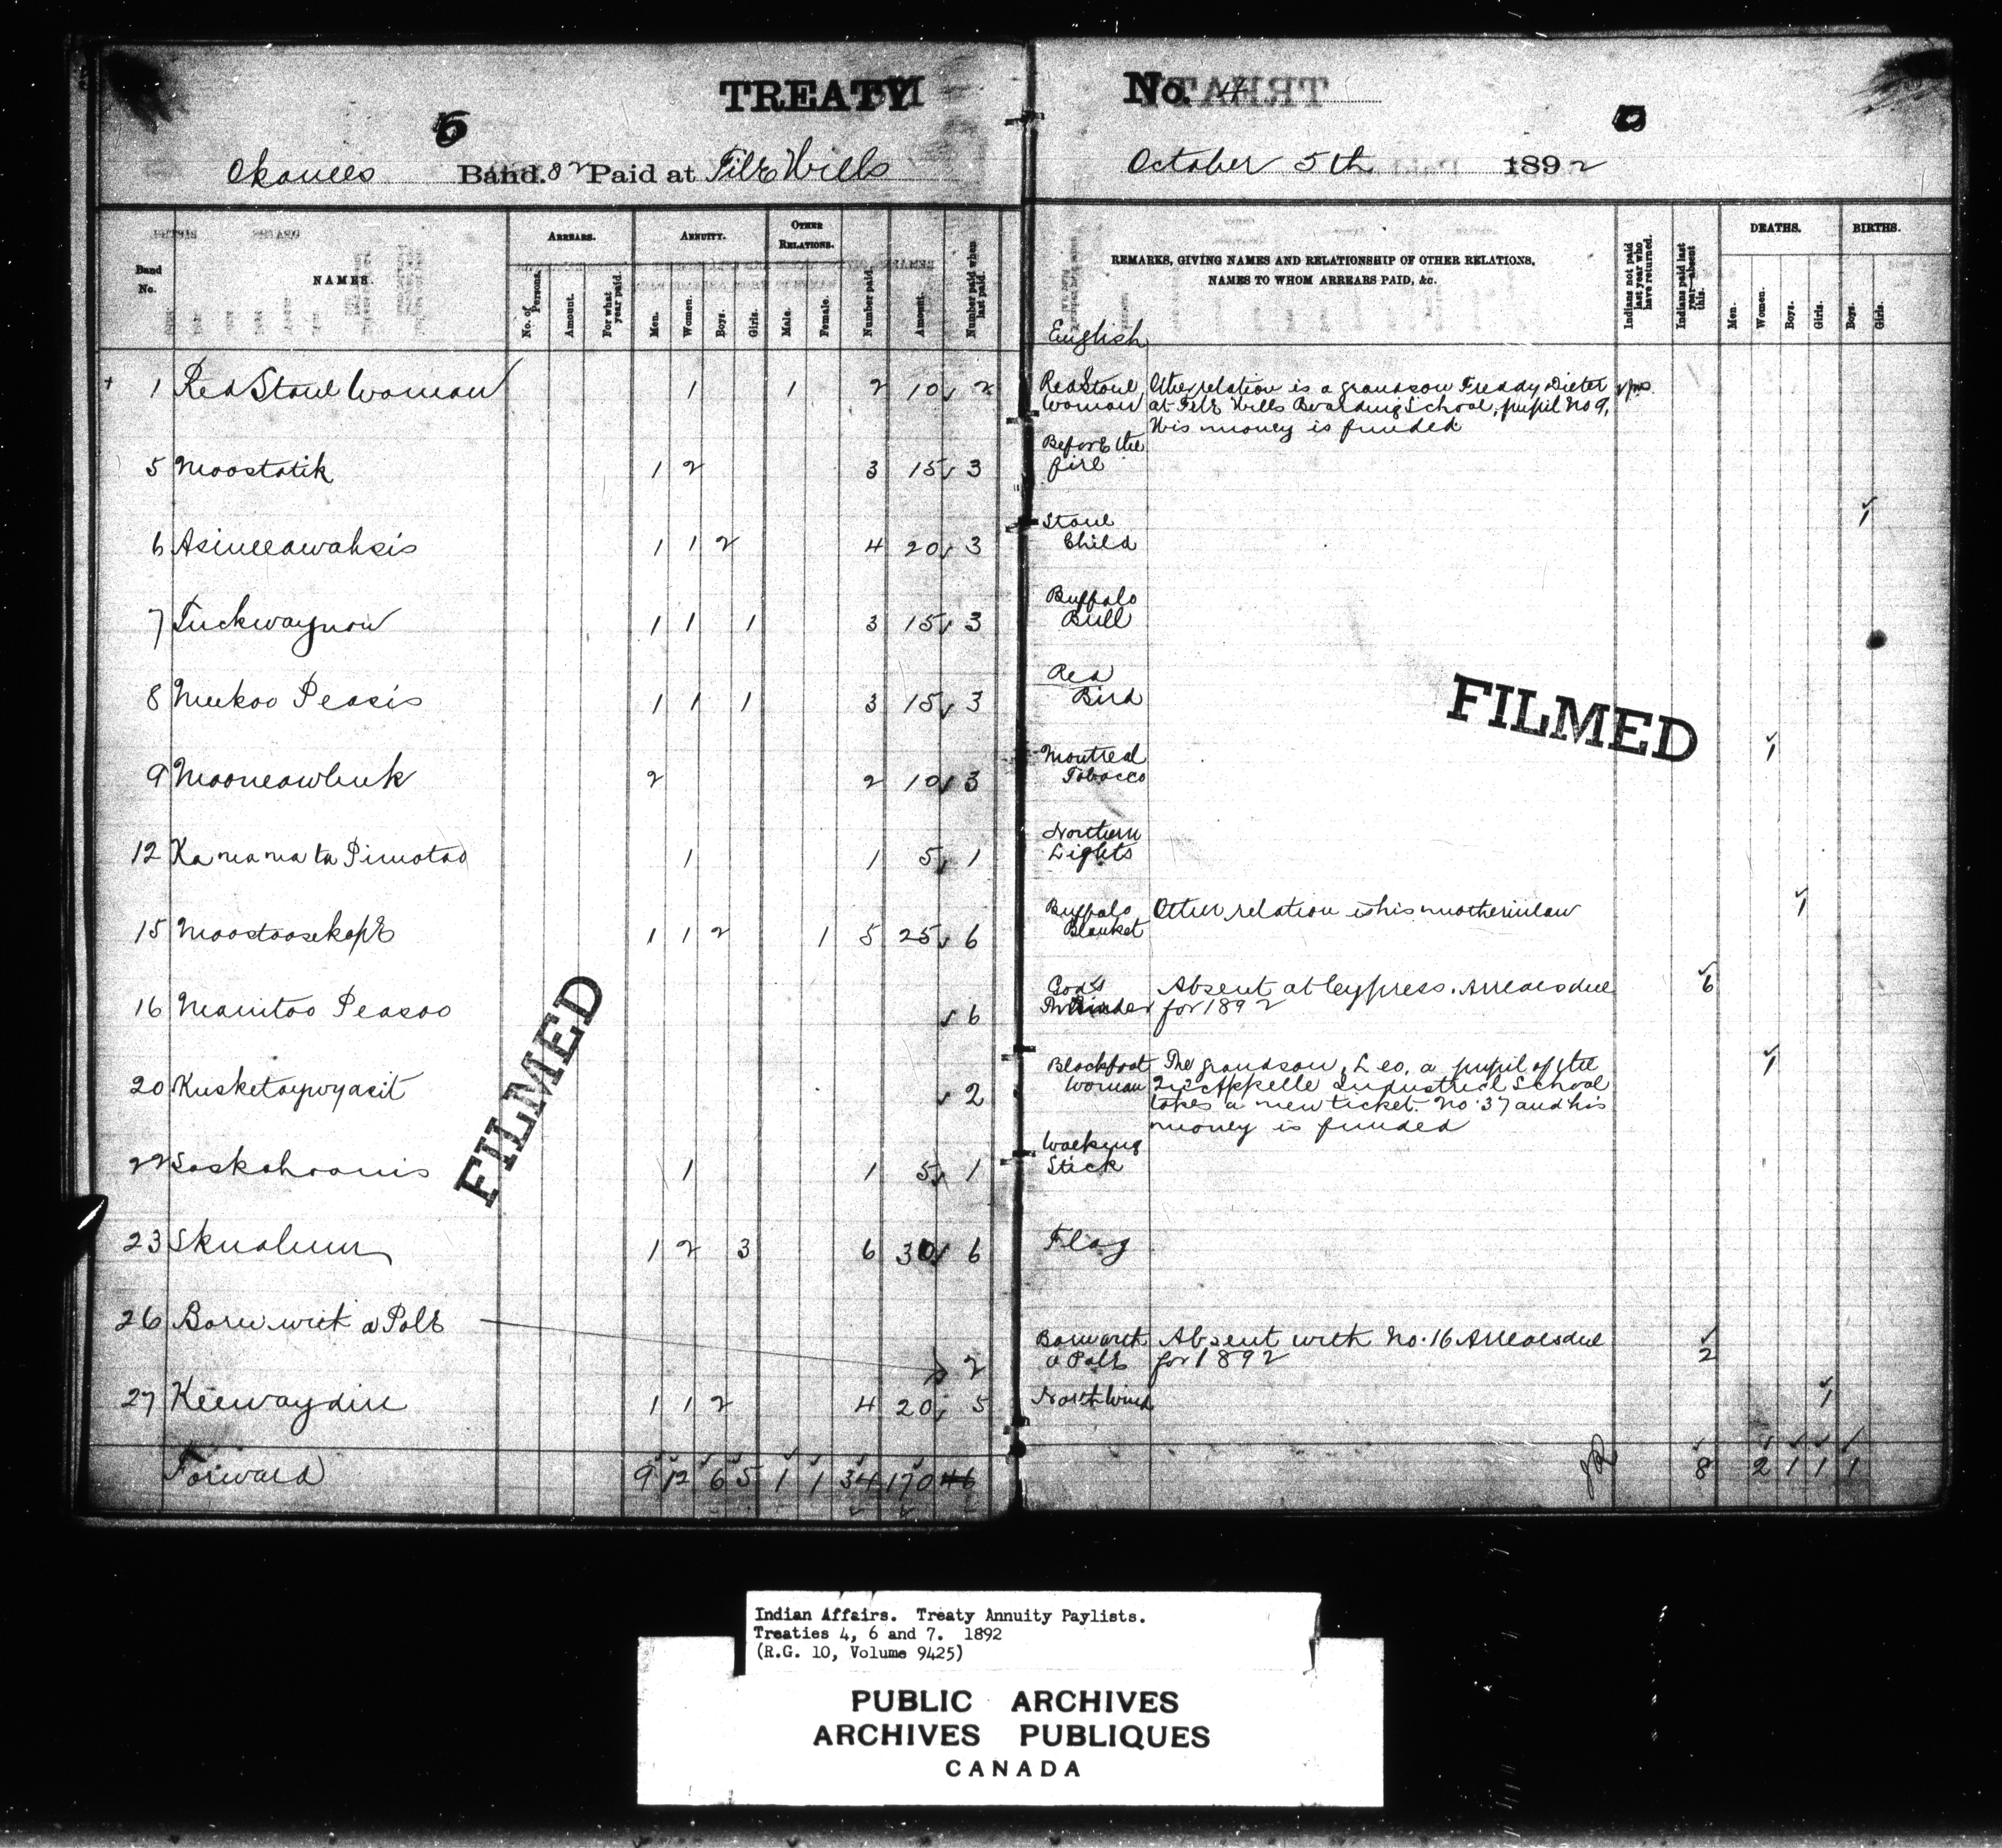 TREATY No. 4
5
Okanees Band. 82 Paid at File Hills October 5th 1892
Band No.
NAMES.
ARREARS.
No. of Persons.
Amount.
For what year paid.
ANNUITY.
Men.
Women.
Boys.
Girls.
OTHER RELATIONS.
Male.
Female.
Number paid.
Amount.
Number paid when last paid.
REMARKS, GIVING NAMES AND RELATIONSHIP OF OTHER RELATIONS,
NAMES TO WHOM ARREARS PAID, &c.
Indians not paid last year who have returned.
Indians paid last year—absent this.
DEATHS.
Men.
Women.
Boys.
Girls.
BIRTHS.
Boys.
Girls.
English
1 Red Stone Woman 1 1 2 10 2 Red Stone Woman
Other relation is a grandson Freddy Dieter
at File Hills Boarding School, pupil No 9,
His money is funded
5 Moostatik 1 2 3 15 3 Before the fire
6 Asineeawahsis 1 1 2 4 20 3 Stone Child 1
7 Tuckwaynow 1 1 1 3 15 3 Buffalo Bull
8 Meekoo Peasis 1 1 1 3 15 3 Red Bird
9 Mooneawbuk 2 2 10 3 Montreal Tobacco 1
12 Ka na na ta Pimotao 1 1 5 1 Northern Lights
15 Moostoosekope 1 1 2 1 5 25 6 Buffalo Blanket Other relation is his mother in law 1
16 Manitoo Peasoo 6 God's Absent at Cypress. Arrears due 6
for 1892
20 Kusketaypwyasit 2 Blackfoot Woman The grandson, Leo, a pupil of the 1
Qu'Appelle Industrial School
takes a new ticket. No. 37 and his
money is funded
22 Saskahoonis 1 1 5 1 Walking Stick
23 Skunalum 1 2 3 6 30 6 Flag
26 Born with a Pole 2 Born with a Pole Absent with No. 16 Arrears due 2
for 1892
27 Keewaydin 1 1 2 4 20 5 North Wind 1
Forward 9 12 6 5 1 1 34 170 46 8 2 1 1 1
FILMED
FILMED
Indian Affairs. Treaty Annuity Paylists.
Treaties 4, 6 and 7. 1892
(R.G. 10, Volume 9425)
PUBLIC ARCHIVES
ARCHIVES PUBLIQUES
CANADA